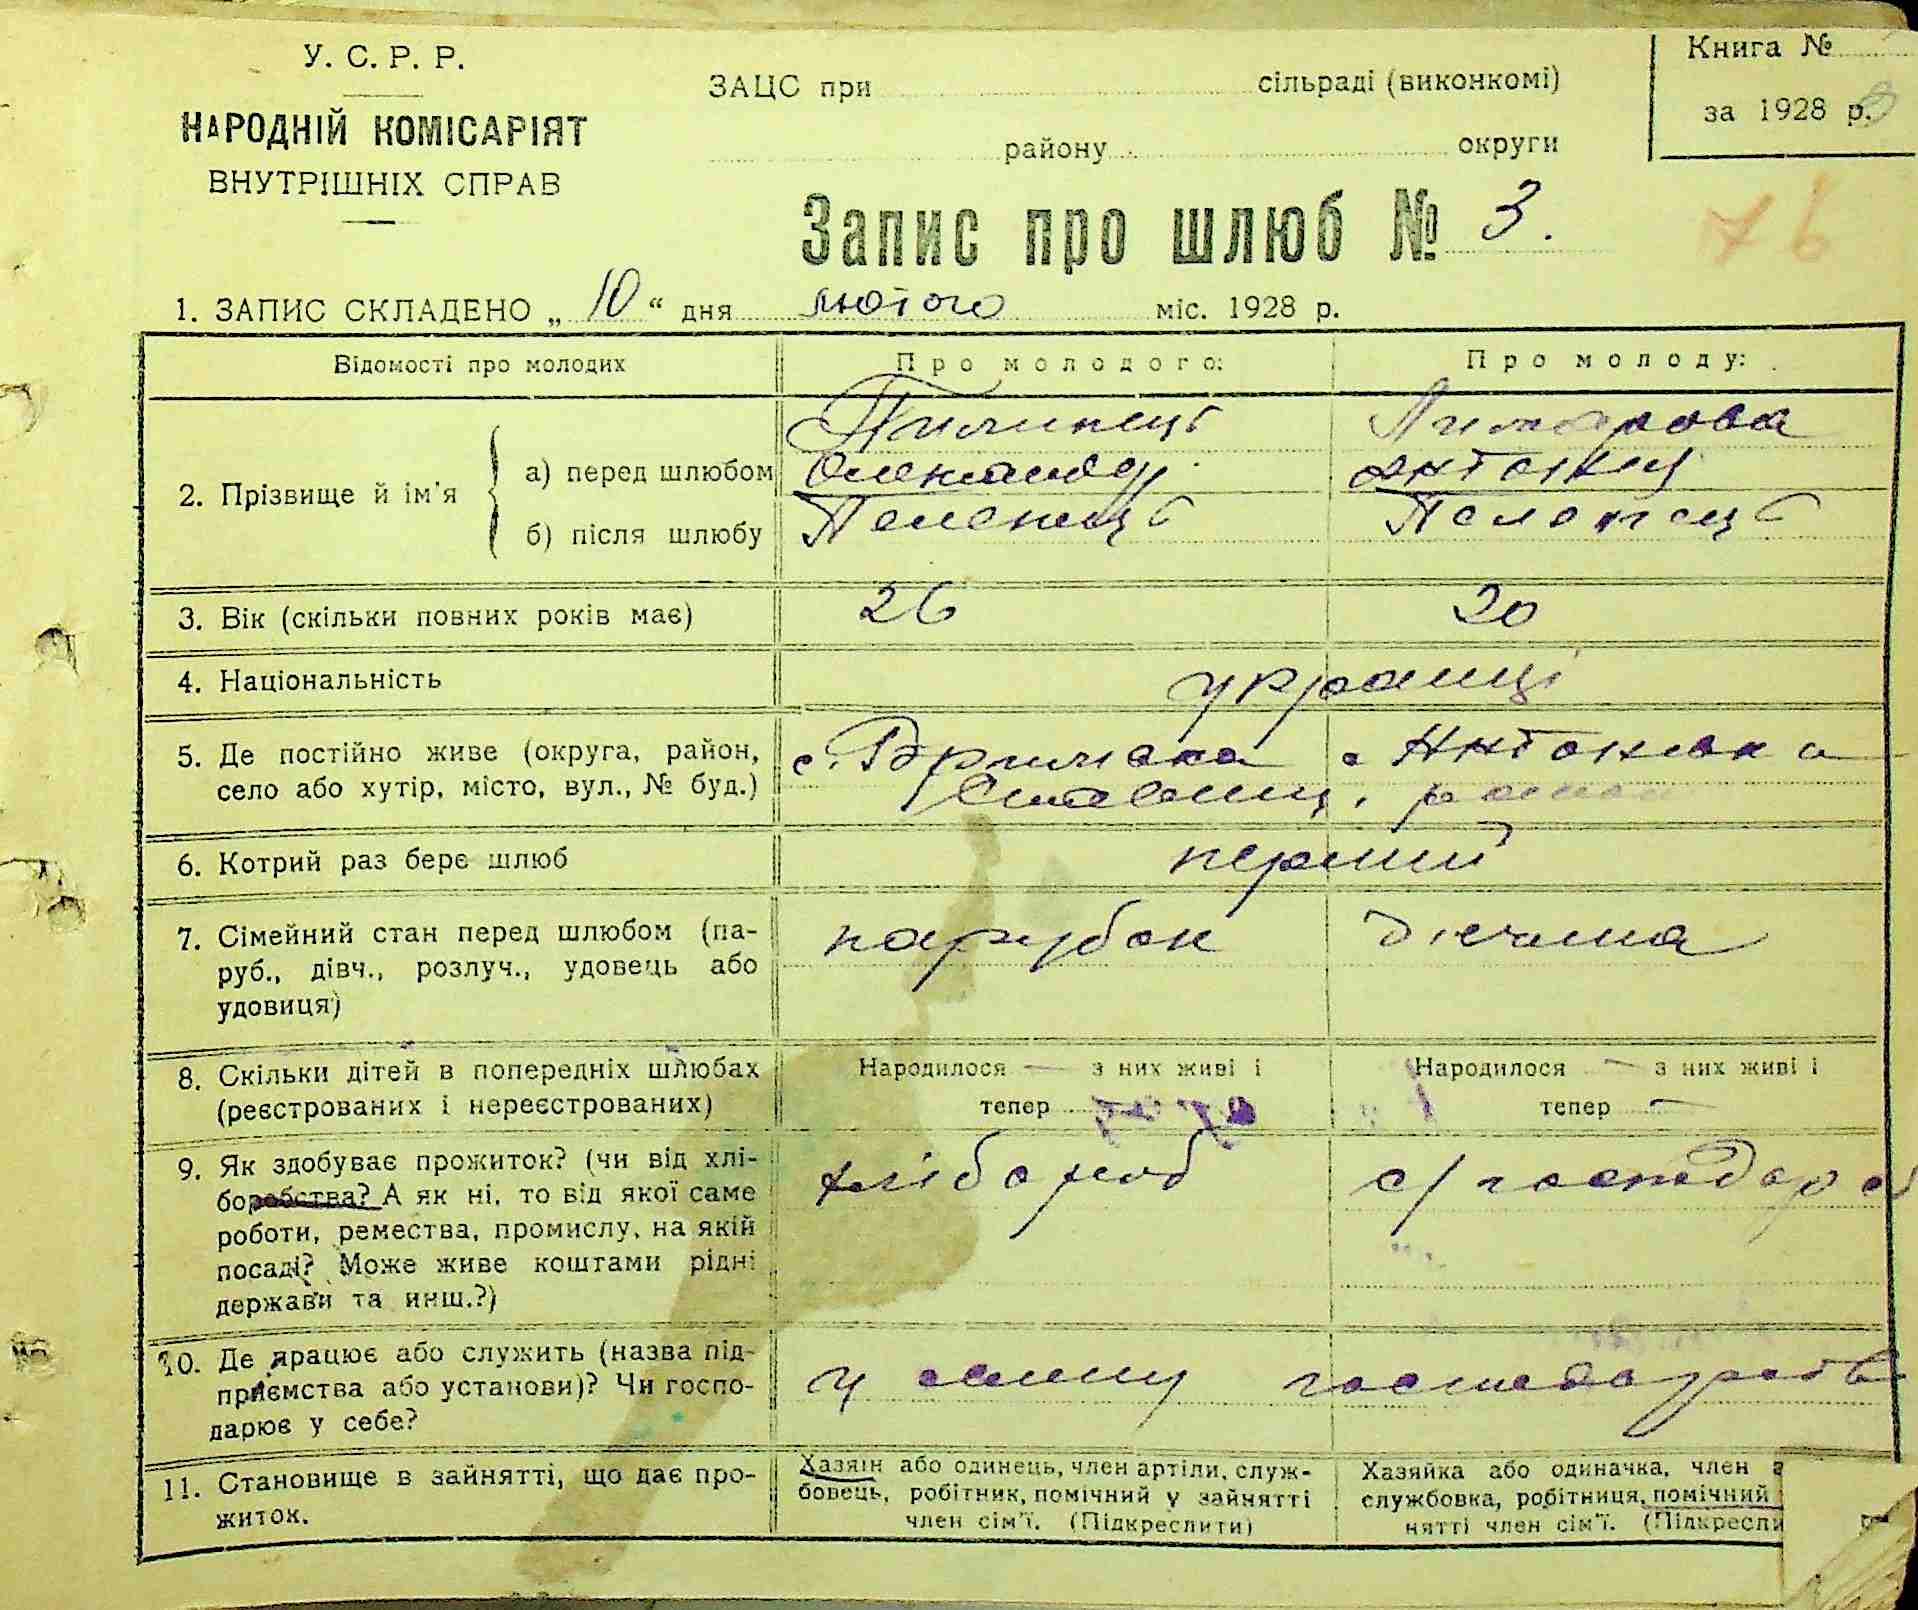 У. С. Р. Р.
НАРОДНІЙ КОМІСАРІЯТ
ВНУТРІШНІХ СПРАВ
ЗАЦС при сільраді (виконкомі)
району округи
Книга №
за 1928 р.
Запис про шлюб № 3.
76
1. ЗАПИС СКЛАДЕНО „ 10 “ дня лютого міс. 1928 р.
Відомості про молодих
Про молодого:
Про молоду:
2. Прізвище й ім'я
а) перед шлюбом
б) після шлюбу
Антонія
3. Вік (скільки повних років має)
26
20
4. Національність
українці
5. Де постійно живе (округа, район,
село або хутір, місто, вул., № буд.)
с.
с Антонівка
район
6. Котрий раз бере шлюб
перший
7. Сімейний стан перед шлюбом (па-
руб., дівч., розлуч., удовець або
удовиця)
парубок
дівчина
8. Скільки дітей в попередніх шлюбах
(реєстрованих і нереєстрованих)
Народилося — з них живі і
тепер
Народилося — з них живі і
тепер —
9. Як здобуває прожиток? (чи від хлі-
боробства? А як ні, то від якої саме
роботи, ремества, промислу, на якій
посаді? Може живе коштами рідні
держави та инш.?)
хлібороб
с/господар
10. Де працює або служить (назва під-
приємства або установи)? Чи госпо-
дарює у себе?
у свому господарстві
11. Становище в зайнятті, що дає про-
житок.
Хазяїн або одинець, член артіли, служ-
бовець, робітник, помічний у зайнятті
член сім'ї. (Підкреслити)
Хазяйка або одиначка, член а
службовка, робітниця, помічний
нятті член сім'ї. (Підкресли